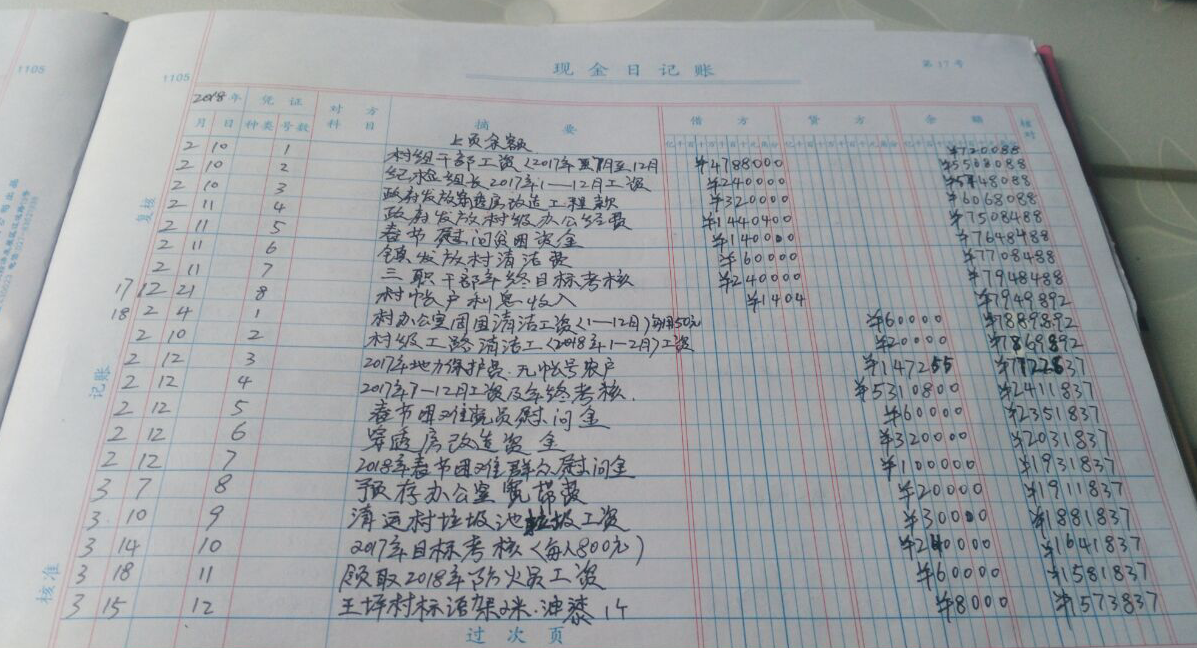 1105
1105
现金日记账
第37号
2018年 凭证 对方科目 摘要 借方 贷方 余额 核对
月 日 种类 号数
亿千百十万千百十元角分 亿千百十万千百十元角分 亿千百十万千百十元角分
上页余额 ¥720088
2 10 1 村组干部工资(2017年7月至12月 ¥4788000 ¥5508088
2 10 2 纪检组长2017年1—12月工资 ¥240000 ¥5748088
2 10 3 政府发放穿透房改造工程款 ¥320000 ¥6068088
2 11 4 政府发放村级办公经费 ¥1440400 ¥7508488
2 11 5 春节慰问贫困资金 ¥140000 ¥7648488
2 11 6 镇发放村清洁费 ¥60000 ¥7708488
2 11 7 三职干部年终目标考核 ¥240000 ¥7948488
17 12 21 8 村帐户利息收入 ¥1404 ¥7949892
18 2 4 1 村办公室周围清洁工资(1—12月)每月50元 ¥60000 ¥7889892
2 10 2 村级工路清洁工(2018年1—2月)工资 ¥20000 ¥7869892
2 12 3 2017年地力保护费.无帐号农户 ¥147255 ¥7722637
2 12 4 2017年7—12月工资及年终考核. ¥5310800 ¥2411837
2 12 5 春节困难党员慰问金 ¥60000 ¥2351837
2 12 6 穿透房改造资金 ¥320000 ¥2031837
2 12 7 2018年春节困难群众慰问金 ¥100000 ¥1931837
3 7 8 预存办公室宽带费 ¥20000 ¥1911837
3 10 9 清运村垃圾池垃圾工资 ¥30000 ¥1881837
3 14 10 2017年目标考核(每人800元) ¥240000 ¥1641837
3 18 11 领取2018年防火员工资 ¥60000 ¥1581837
3 15 12 王坪村标语架2米.油漆1个 ¥8000 ¥1573837
过次页
复核
记账
核准